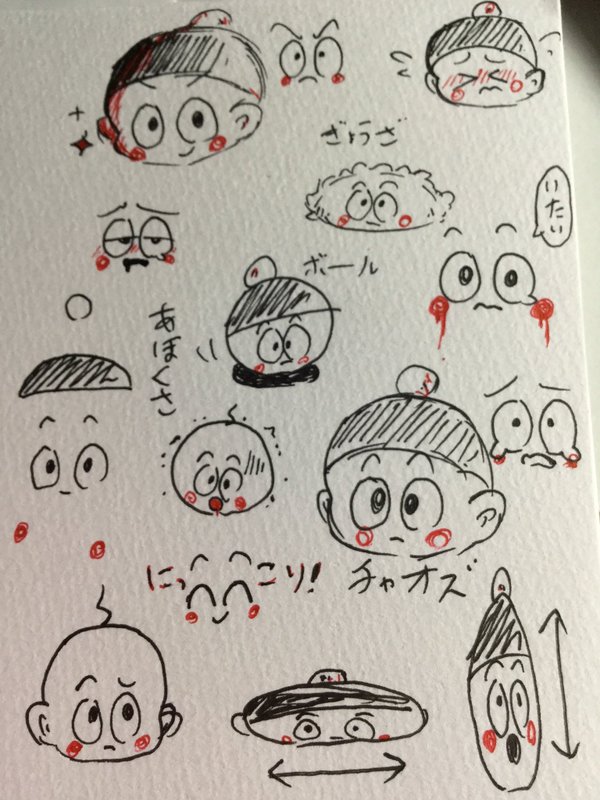 ぎょうざ
いたい
ボール
あほくさ
にっこり!
チャオズ